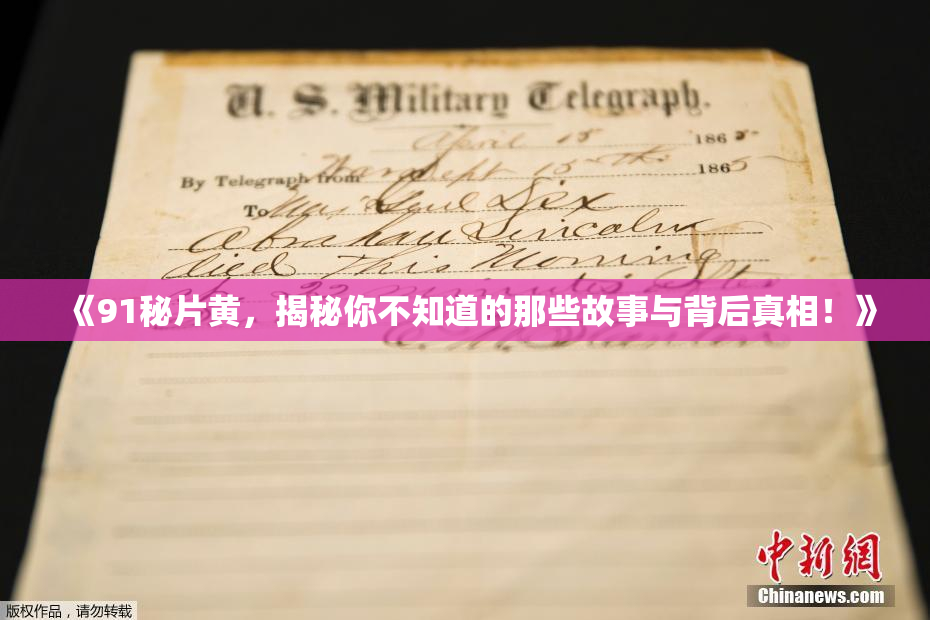 U. S. Military Telegraph.
April 15 1865
By Telegraph from War Dept 15th 1865
To Maj Genl Dix
Abraham Lincoln
died This Morning
22 minutes after
《91秘片黄，揭秘你不知道的那些故事与背后真相！》
中新网
Chinanews.com
版权作品，请勿转载